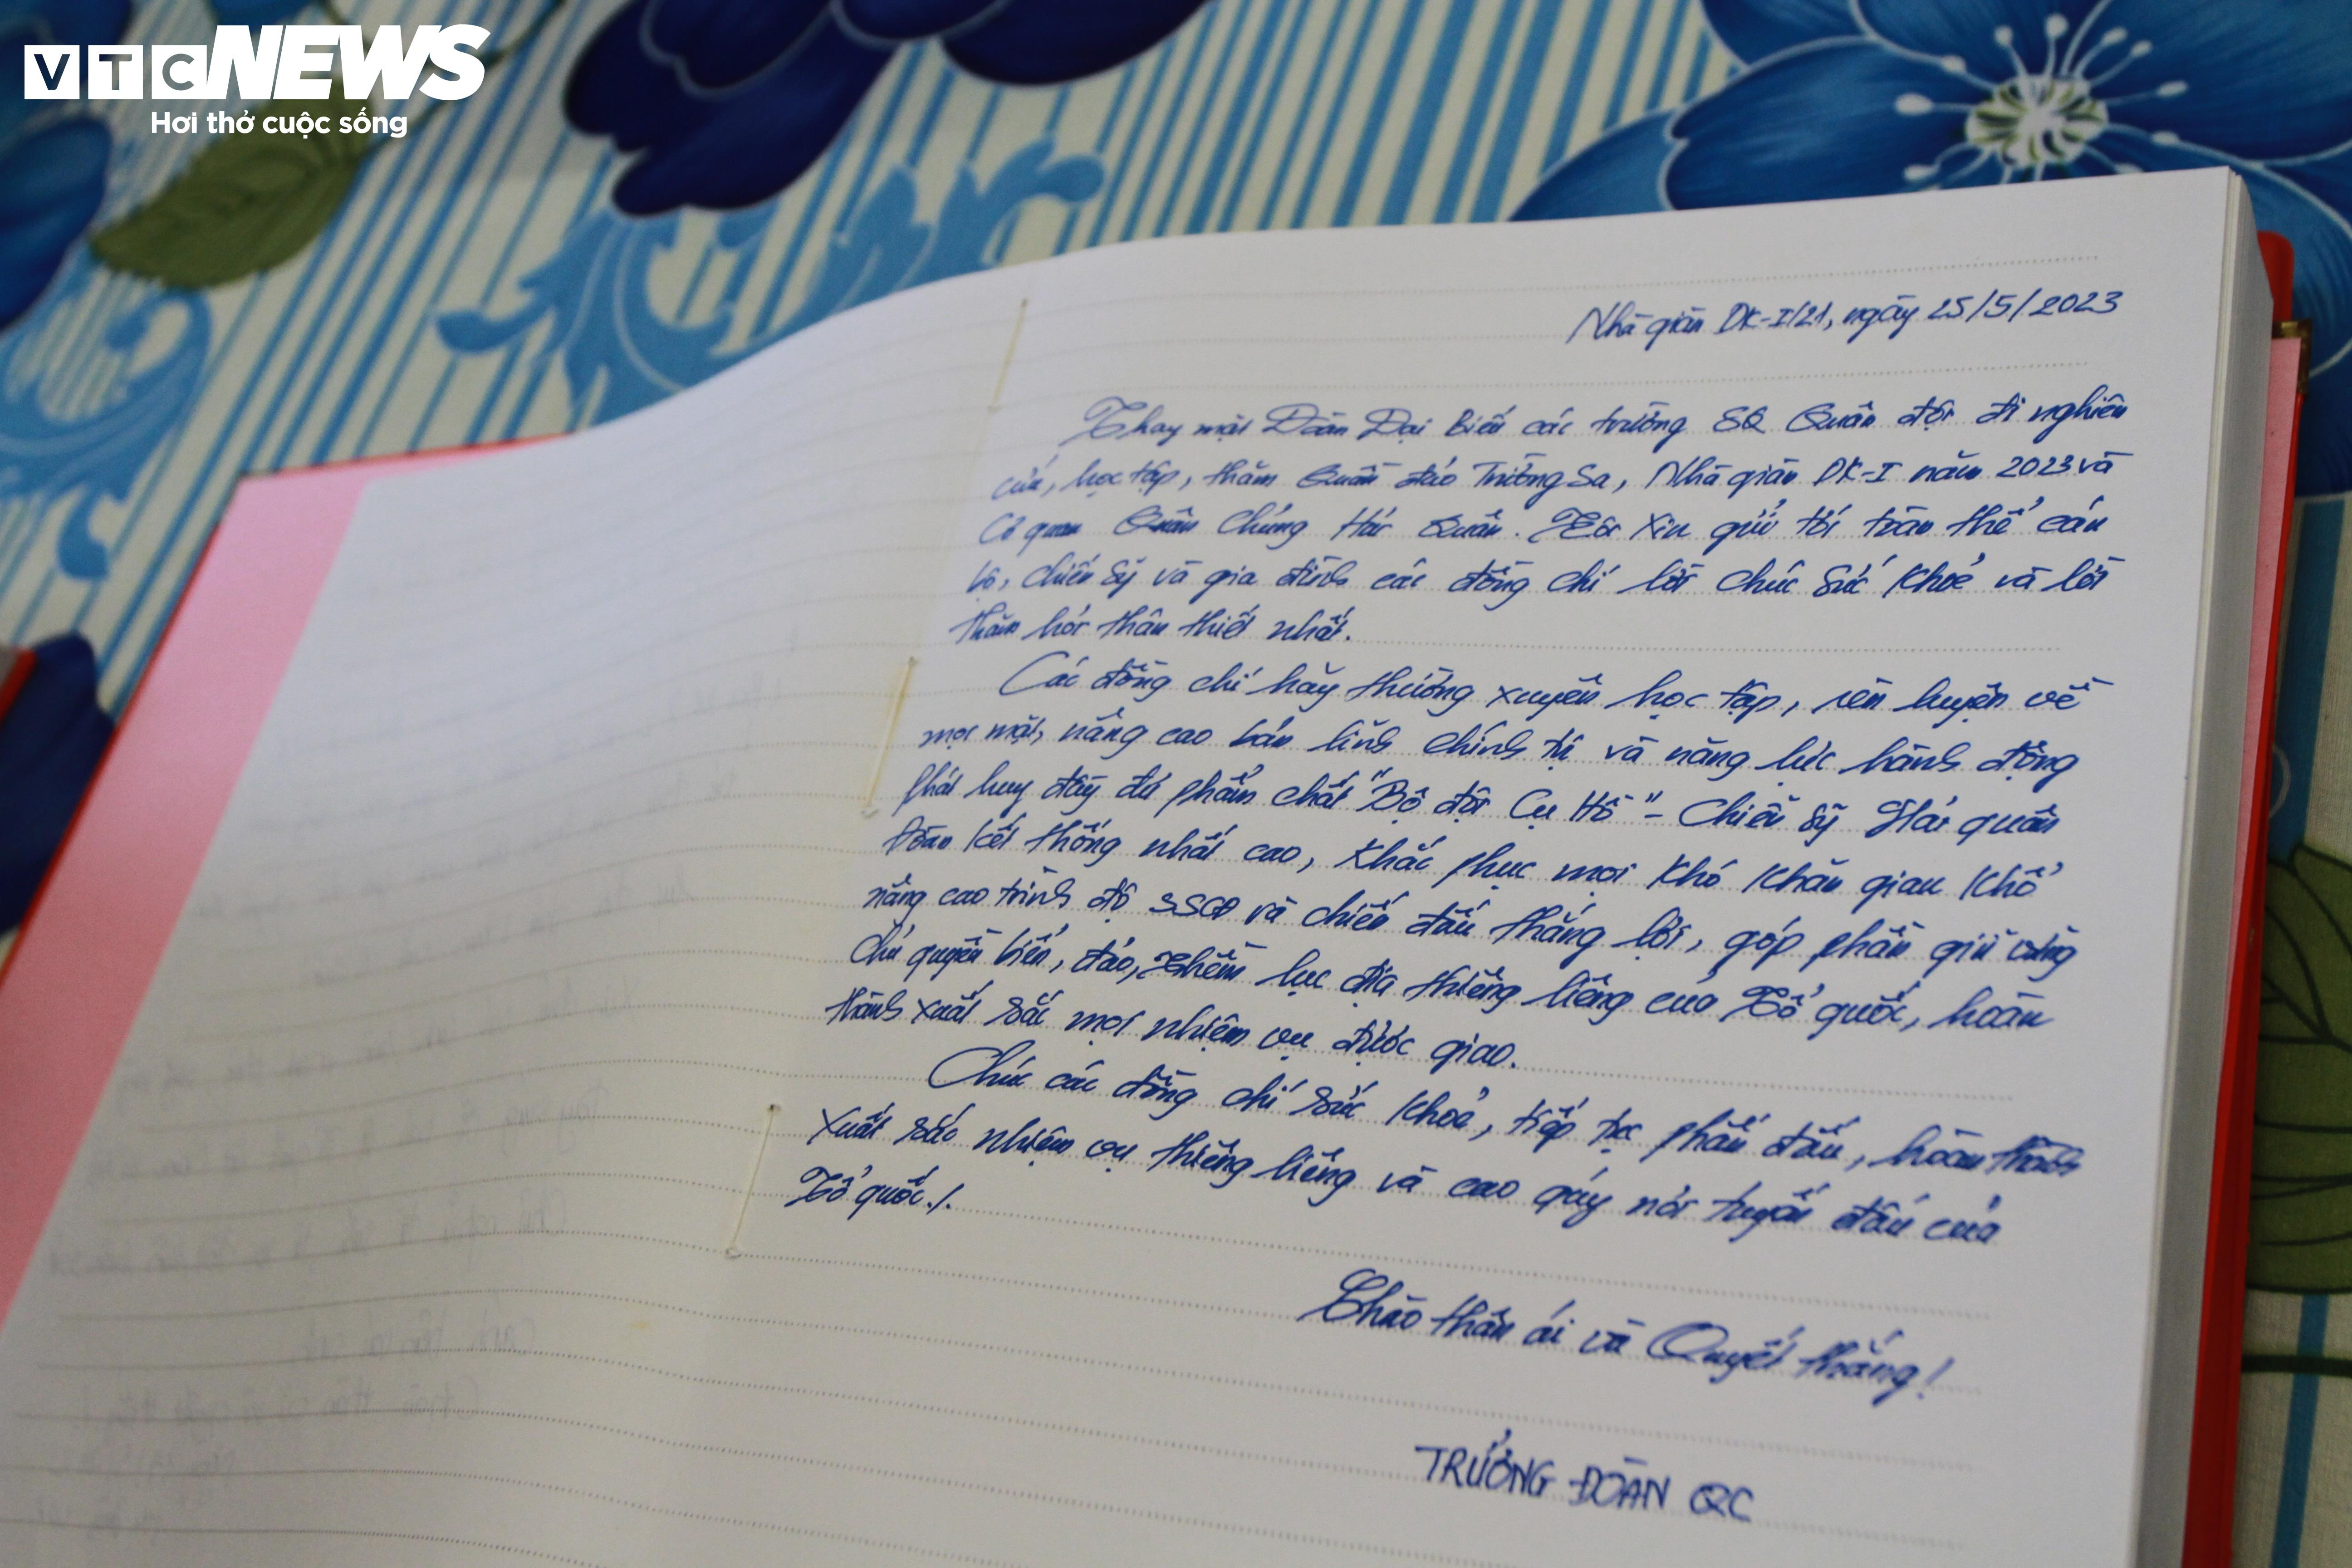 VTC NEWS
Hơi thở cuộc sống
Nhà giàn DK-I/21, ngày 25/5/2023
Thay mặt Đoàn Đại Biểu các trường SQ Quân đội đi nghiên
cứu, học tập, thăm Quần đảo Trường Sa, Nhà giàn DK-I năm 2023 và
Cơ quan Quân Chủng Hải Quân. Tôi xin gửi tới toàn thể cán
bộ, chiến sỹ và gia đình các đồng chí lời chúc sức khoẻ và lời
thăm hỏi thân thiết nhất.
Các đồng chí hãy thường xuyên học tập, rèn luyện về
mọi mặt, nâng cao bản lĩnh chính trị và năng lực hành động
phát huy đầy đủ phẩm chất "Bộ đội Cụ Hồ" - Chiến sỹ Hải quân
Đoàn kết thống nhất cao, khắc phục mọi khó khăn gian khổ
nâng cao trình độ SSCĐ và chiến đấu thắng lợi, góp phần giữ vững
chủ quyền biển, đảo, thềm lục địa thiêng liêng của Tổ quốc, hoàn
thành xuất sắc mọi nhiệm vụ được giao.
Chúc các đồng chí sức khoẻ, tiếp tục phấn đấu, hoàn thành
xuất sắc nhiệm vụ thiêng liêng và cao quý nơi tuyến đầu của
Tổ quốc./.
Chào thân ái và Quyết thắng!
TRƯỞNG ĐOÀN QC